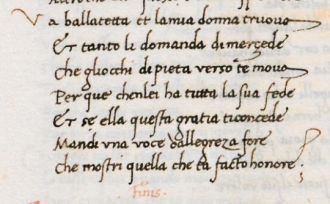 Va ballatetta et la mia donna truova
Et tanto li domanda di mercede
Che gliocchi di pieta verso te mova
Per que chenlei ha tutta la sua fede
Et se ella questa gratia ticoncede
Mandi una voce dallegreza fore
Che mostri quella che ta facto honore.
Finis.